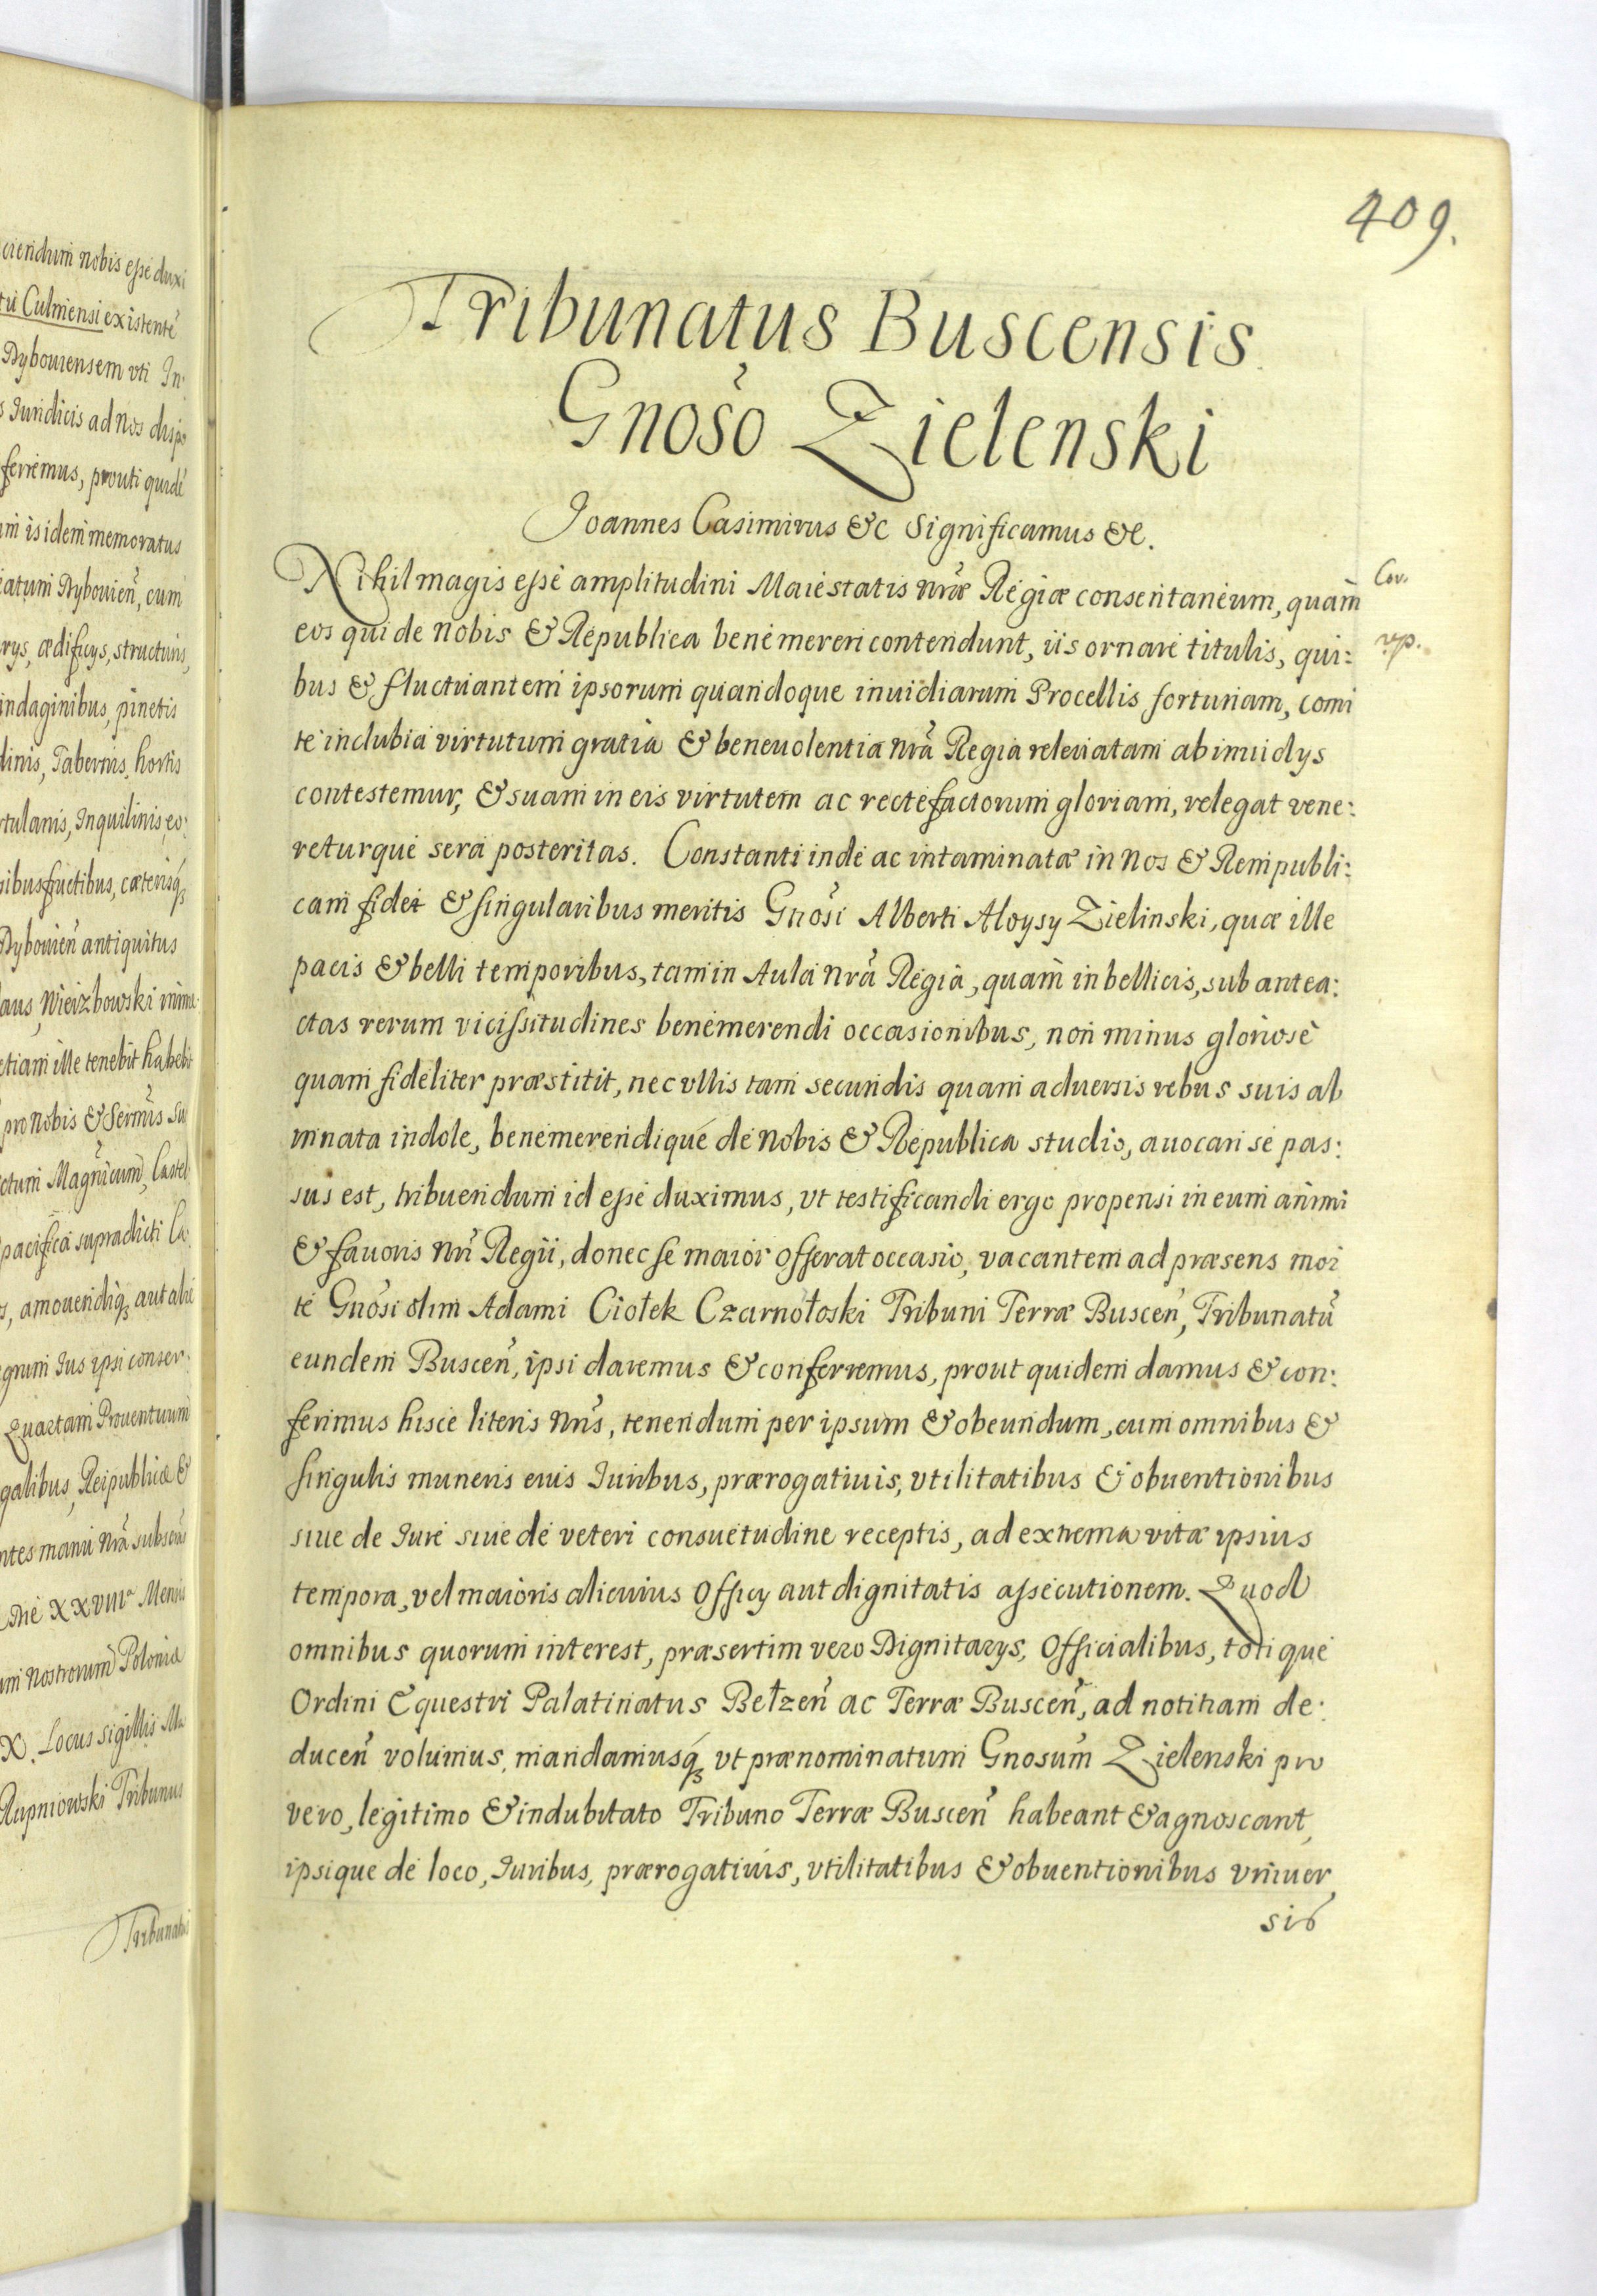 ciendum nobis esse duxi
tu Culmensi existente
Dybouiensem vti In:
s Iuridicis ad nos disp
ferremus, prouti quidē
um is idem memoratus
iatum Dybouien̄, cum
rys, ædificys, structuris,
indaginibus, pinetis
dinis, Tabernis, hortis
rtulanis, Inquilinis, eo:
nibus fructibus, cæterisq́₃
Dybouien̄ antiquitus
laus Wieizbowski
etiam ille tenebit habebit
pro nobis & Sermis̄ Su
ctum Magn̄icum, Castel
pacifica supradicti la:
s, amouendiq́₃ aut
gnum Ius ipsi conser:
Quartam Prouentuum
galibus, Reipublicæ &
ntes manu nrā subscrip
Die XXVIIIᵃ Mensis
um nostrorum Poloniæ
X. Locus sigillis Ma
Rupniowski Tribunus
Tribunatus
409.
Tribunatus Buscensis
Gnoso̅ Zielenski
Joannes Casimirus &c Significamus &c.
Nihil magis esse amplitudini Maiestatis nrǣ Regiæ consentaneum, quam̀
Cor.
eos qui de nobis & Republica bene mereri contendunt, iis ornare titulis, qui:
rsp.
bus & fluctuantem ipsorum quandoque inuidiarum Procellis fortunam, comi
te indubia virtutum gratia & beneuolentia nrā Regia releuatam ab inuidys
contestemur, & suam in eis virtutem ac recte factorum gloriam, relegat vene:
returque sera posteritas. Constanti inde ac intaminatæ in nos & Rempubli:
cam fidei & singularibus meritis Gnōsi Alberti Aloysy Zielinski, quæ ille
pacis & belli temporibus, tam in Aula nrā Regia, quam̀ in bellicis, sub antea:
ctas rerum vicissitudines benemerendi occasionibus, non minus gloriosè
quam fideliter præstitit, nec vllis tam secundis quam aduersis rebus suis ab
innata indole, benemerendique de nobis & Republica studio, auocari se pas:
sus est, tribuendum id esse duximus, vt testificandi ergo propensi in eum animi
& fauoris nrī Regii, donec se maior offerat occasio, vacantem ad præsens mor
te Gnōsi olim Adami Ciołek Czarnołoski Tribuni Terræ Buscen̄, Tribunatū
eundem Buscen̄, ipsi daremus & conferremus, prout quidem damus & con:
ferimus hisce literis nrīs, tenendum per ipsum & obeundum, cum omnibus &
singulis muneris eius Iuribus, prærogatiuis, vtilitatibus & obuentionibus
siue de Iure siue de veteri consuetudine receptis, ad extrema vitæ ipsius
tempora, vel maioris alicuius Officy aut dignitatis assecutionem. Quod
omnibus quorum interest, præsertim vero Dignitarys, Officialibus, totique
Ordini Equestri Palatinatus Bełzen̄ ac Terræ Buscen̄, ad notitiam de:
ducen̄ volumus, mandamusq́₃ vt prænominatum Gnosum̄ Zielenski pro
vero, legitimo & indubitato Tribuno Terræ Buscen̄ habeant & agnoscant,
ipsique de loco, Iuribus, prærogatiuis, vtilitatibus & obuentionibus vniuer
sis